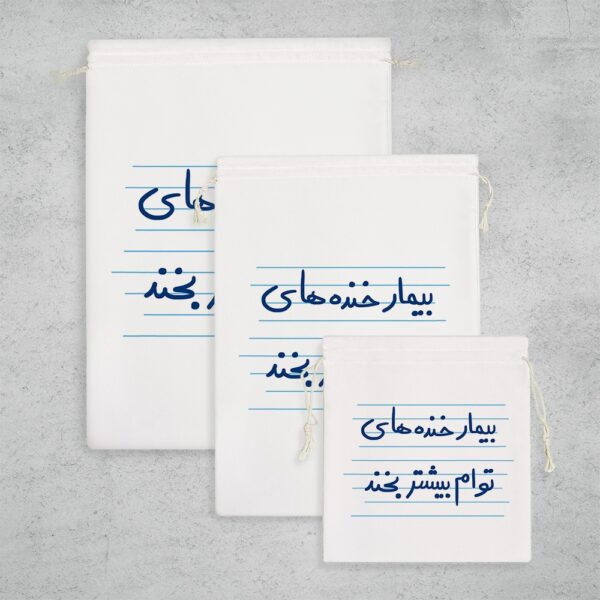 های
بخند
بیمار خنده های
بخند
بیمار خنده های
توام بیشتر بخند